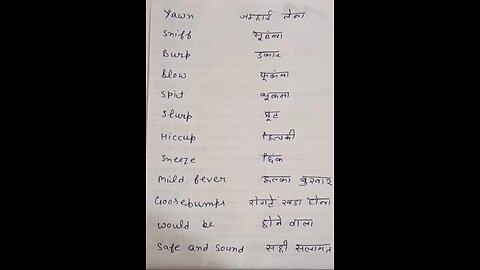 Yawn जम्हाई लेना
Sniff सूघंना
Burp डकार
Blow फूकंना
Spit थूकना
Slurp घूंट
Hiccup हिचकी
Sneeze छिंक
Mild fever हल्का बुखार
Goosebumps रोंगटे खडा होना
Would be होने वाला
Safe and sound सही सलामत